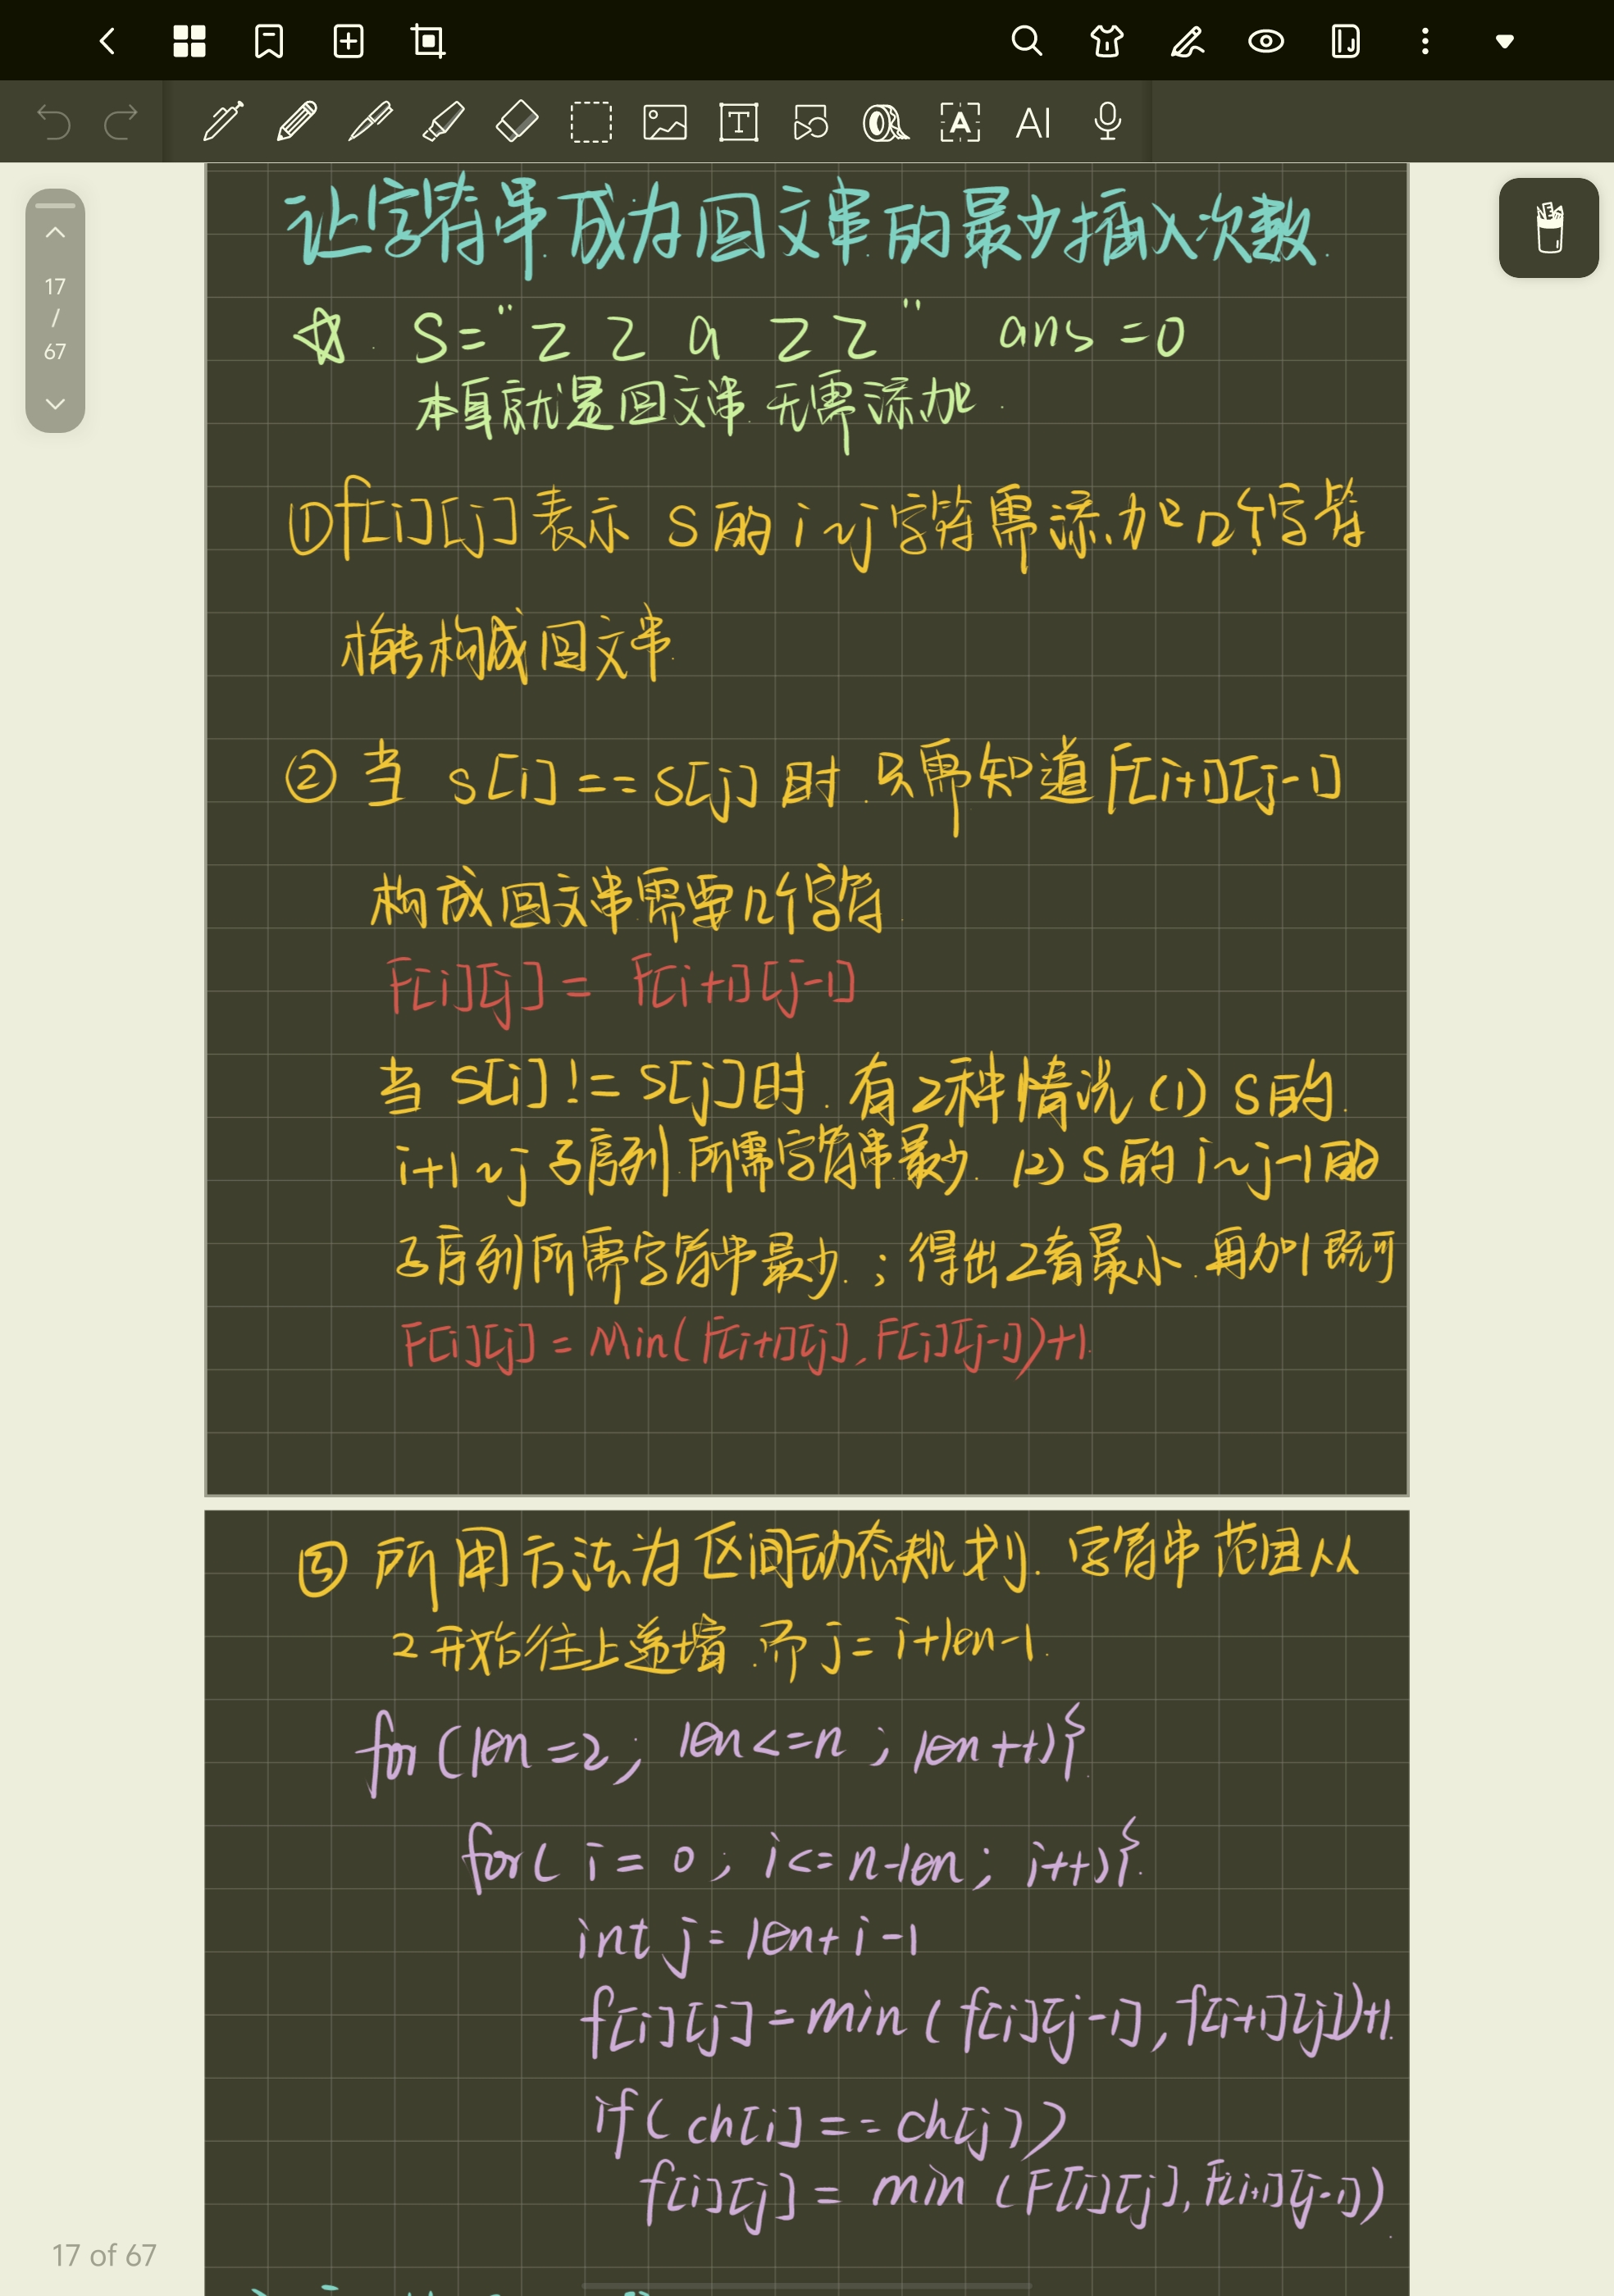 17
/
67
T
A
AI
让字符串成为回文串的最少插入次数.
☆. S="zzazz" ans=0
本身就是回文串 无需添加.
①f[i][j]表示 S的i~j字符需添加几个字符
才能构成回文串.
② 当 s[i]==S[j]时.只需知道F[i+1][j-1]
构成回文串需要几个字符.
F[i][j]= F[i+1][j-1]
当S[i]!=S[j]时.有2种情况(1)S的.
i+1~j子序列.所需字符串最少.(2)S的i~j-1的
子序列所需字符串最少.;得出2者最小.再加1既可
F[i][j]=Min(F[i+1][j],F[i][j-1])+1.
③ 所用方法为区间动态规划.字符串范围从
2开始往上递增.而j=i+len-1.
for(len=2; len<=n; len++){
for(i=0; i<=n-len; i++){
int j=len+i-1
f[i][j]=min(f[i][j-1],f[i+1][j])+1.
if(ch[i]==ch[j])
f[i][j]=min(F[i][j],F[i+1][j-1])
17 of 67